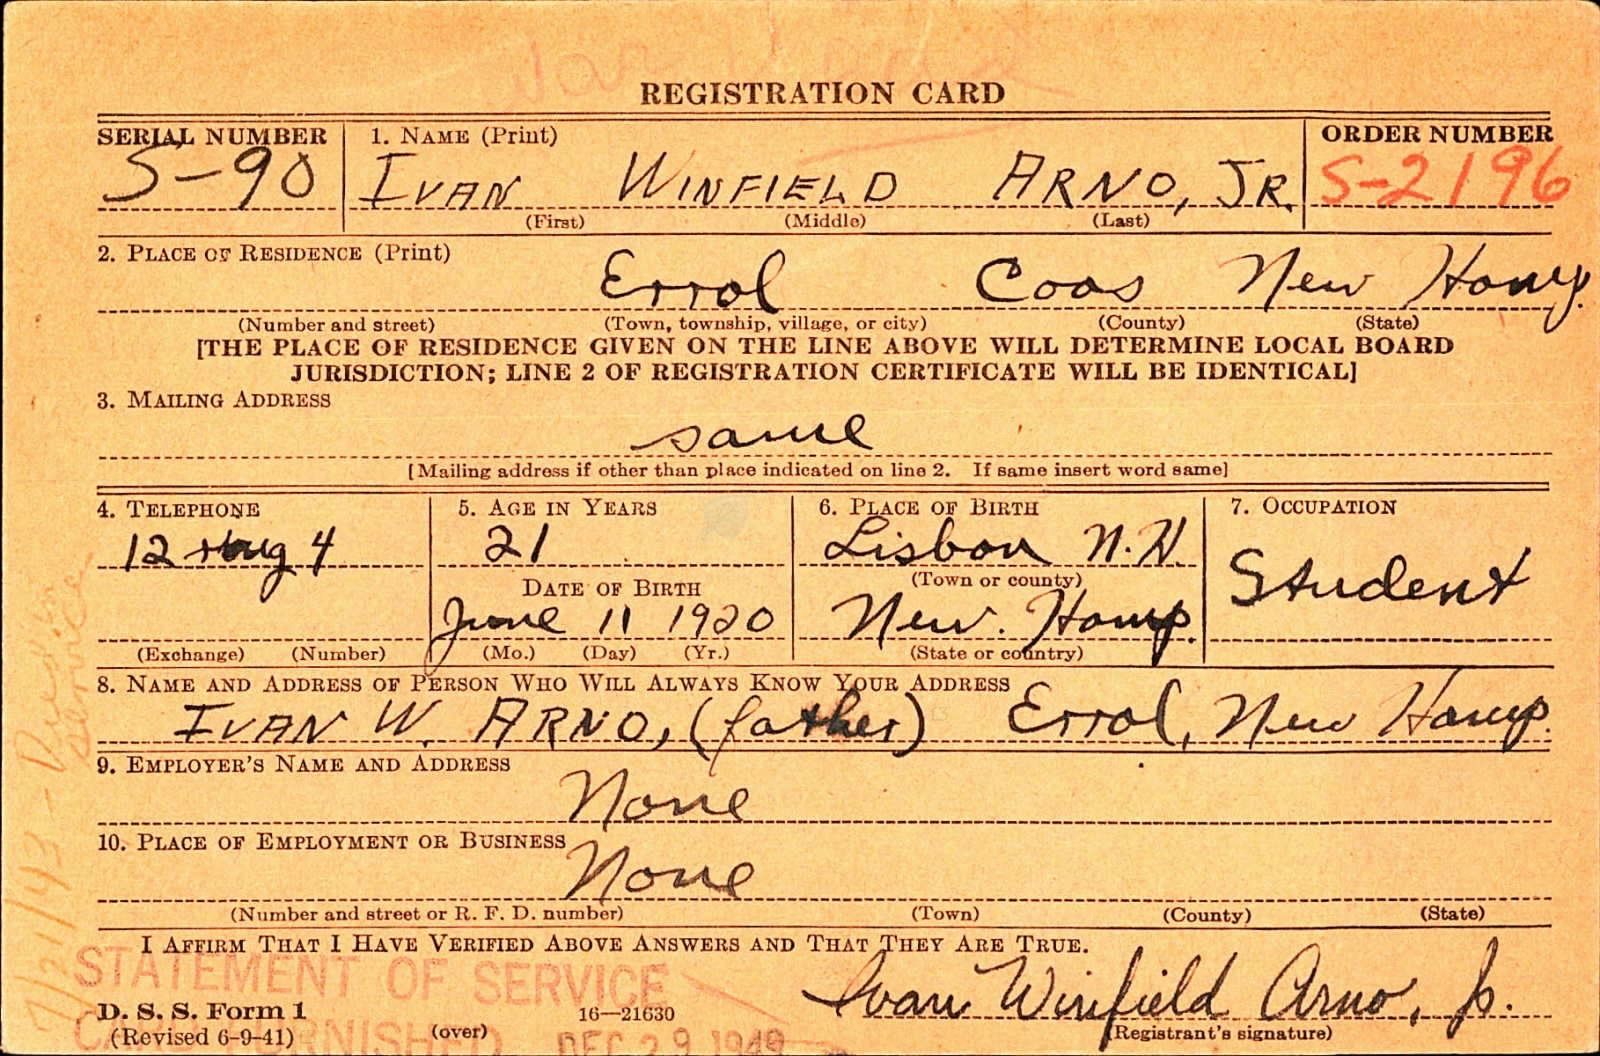 REGISTRATION CARD
SERIAL NUMBER 1. NAME (Print) ORDER NUMBER
S-90 IVAN WINFIELD ARNO, JR. S-2196
(First) (Middle) (Last)
2. PLACE OF RESIDENCE (Print)
Errol Coos New Hamp.
(Number and street) (Town, township, village, or city) (County) (State)
[THE PLACE OF RESIDENCE GIVEN ON THE LINE ABOVE WILL DETERMINE LOCAL BOARD
JURISDICTION; LINE 2 OF REGISTRATION CERTIFICATE WILL BE IDENTICAL]
3. MAILING ADDRESS
same
[Mailing address if other than place indicated on line 2. If same insert word same]
4. TELEPHONE 5. AGE IN YEARS 6. PLACE OF BIRTH 7. OCCUPATION
12 ring 4 21 Lisbon N.H. Student
DATE OF BIRTH (Town or county)
June 11 1920 New. Hamp.
(Exchange) (Number) (Mo.) (Day) (Yr.) (State or country)
8. NAME AND ADDRESS OF PERSON WHO WILL ALWAYS KNOW YOUR ADDRESS
IVAN W. ARNO, (father) Errol, New Hamp.
9. EMPLOYER'S NAME AND ADDRESS
None
10. PLACE OF EMPLOYMENT OR BUSINESS
None
(Number and street or R. F. D. number) (Town) (County) (State)
I AFFIRM THAT I HAVE VERIFIED ABOVE ANSWERS AND THAT THEY ARE TRUE.
STATEMENT OF SERVICE
Ivan Winfield Arno, Jr.
D. S. S. Form 1 16—21630
(Revised 6-9-41) (over) (Registrant's signature)
CARD FURNISHED DEC 29 1948
7/21/43 - Death in
service